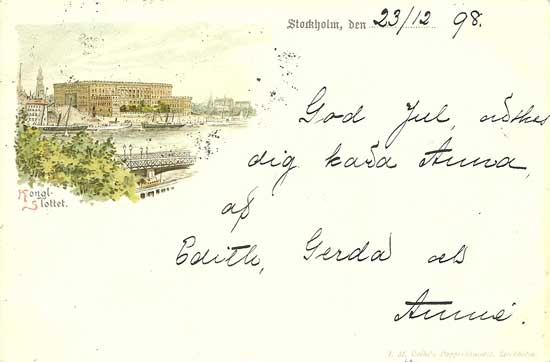 Stockholm, den 23/12 98.
God Jul, önskes
dig kära Anna,
af
Edith, Gerda och
Anna.
Kongl.
Slottet.